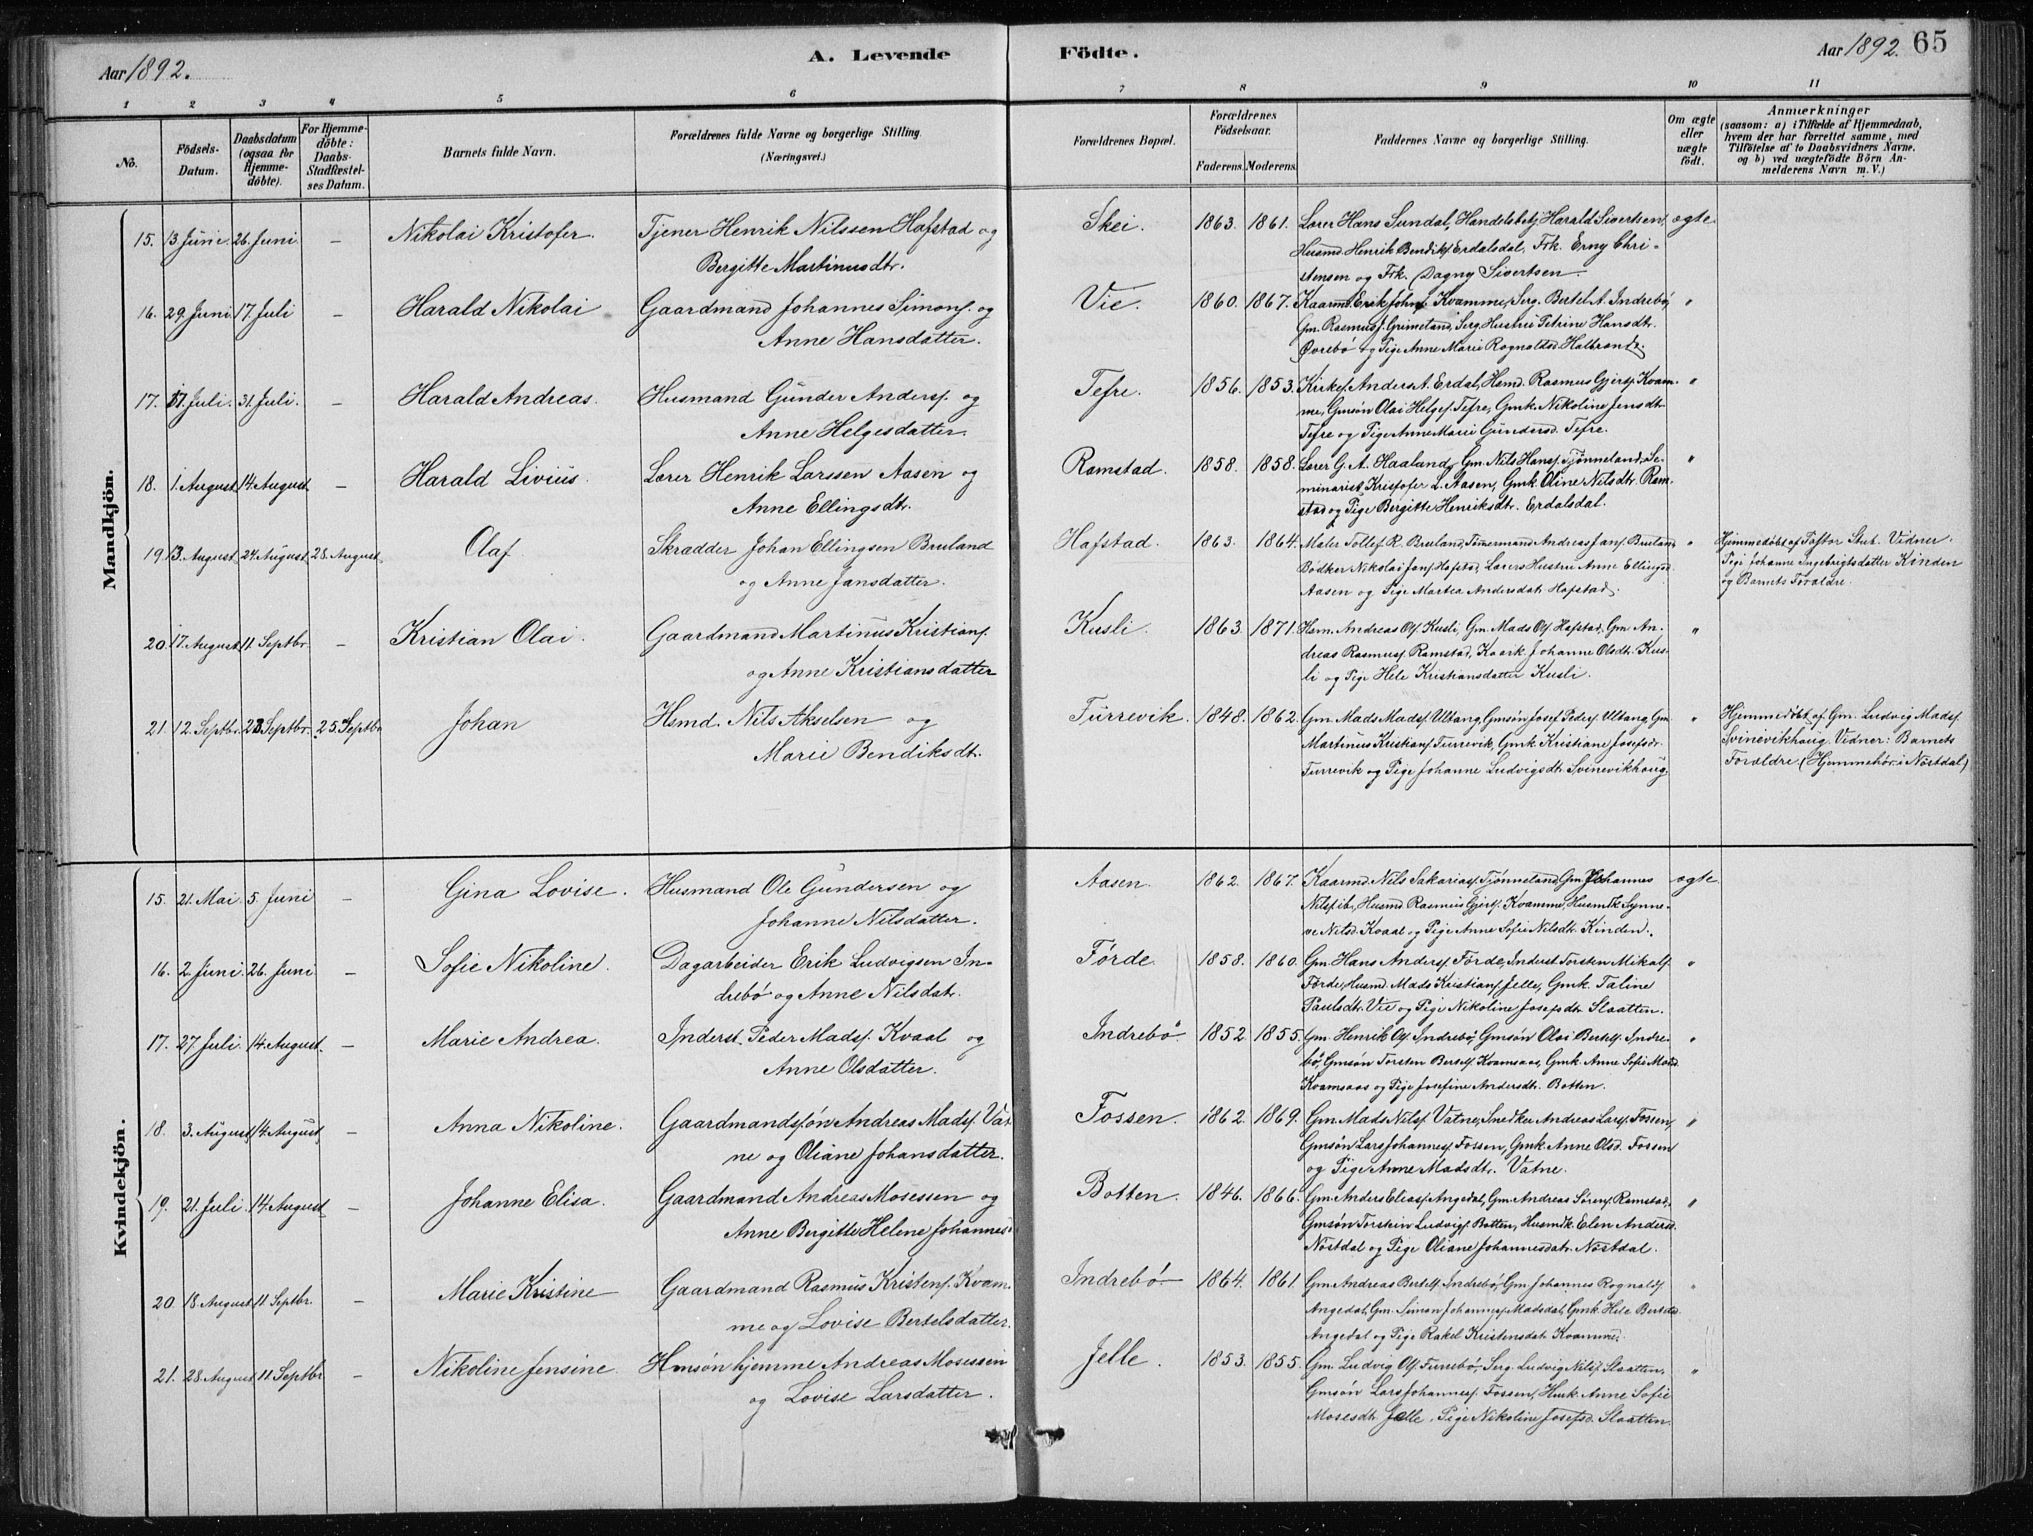 Aar 1892.
A. Levende Födte.
Aar 1892. 65
1 2 3 4 5 6 7 8 9 10 11
No.
Födsels-Datum.
Daabsdatum (ogsaa for Hjemme-döbte).
For Hjemme-döbte: Daabs-Stadfæstel-ses Datum.
Barnets fulde Navn.
Forældrenes fulde Navne og borgerlige Stilling. (Næringsvei.)
Forældrenes Bopæl.
Forældrenes Födselsaar.
Faderens. Moderens.
Faddernes Navne og borgerlige Stilling.
Om ægte eller uægte födt.
Anmærkninger (saasom: a) i Tilfælde af Hjemmedaab, hvem der har forrettet samme, med Tilföielse af to Daabsvidners Navne, og b) ved uægtefödte Börn An-melderens Navn m. V.)
Mandkjön.
15. 13 Juni. 26 Juni – Nikolai Kristofer. Tjener Henrik Nilssen Hafstad og
Bergitte Martinusdtr.
Skei. 1863. 1861. Lærer Hans Sundal, Handelsbetj. Harald Sivertsen, ægte.
Husmd. Henrik Bendiks. Erdalsdal, Frk. Erny Chri-
stensen og Frk. Dagny Sivertsen.
16. 29. Juni 17. Juli – Harald Nikolai Gaardmand Johannes Simons. og
Anne Hansdatter.
Vie. 1860. 1867. Kaarmd. Erik Johns. Kvamme, Serg. Bertel A. Indrebø, "
Gm. Rasmus J. Grimeland, Serg. Hustru Petrine Hansdtr.
Øvrebö og Pige Anne Marie Rognaldsd. Halbrend.
17. 17. Juli. 31. Juli. – Harald Andreas. Husmand Gunder Anders. og
Anne Helgesdatter.
Tefre. 1856. 1853. Kirkes. Anders A. Erdal, Hsmd. Rasmus Gjers. Kvam- "
me, Gmsøn Olai Helges. Tefre, Gmk. Nikoline Jensdtr.
Tefre og Pige Anne Marie Gundersd. Tefre.
18. 1. August 14. August – Harald Livius. Lærer Henrik Larssen Aasen og
Anne Ellingsdtr.
Ramstad. 1858. 1858. Lærer G. A. Haaland, Gm. Nils Hans. Tjønneland, Se- "
minarist Kristofer L. Aasen, Gmk. Oline Nilsdtr. Ram-
stad og Pige Bergitte Henriksdtr. Erdalsdal.
19. 13. August 24. August 28. August Olaf Skrædder Johan Ellingsen Bruland
og Anne Jansdatter.
Hafstad. 1863. 1864. Maler Tollef R. Bruland, Timermand Andreas Jans. Bruland "
Bödker Nikolai Jans. Hafstad, Lærers Hustru Anne Ellingsd.
Aasen og Pige Martea Andersdatr. Hafstad.
Hjemmedøbt af Pastor Vidner:
Pige Johanne Ingebrigtsdatter Kinden
og Barnets Forældre.
20. 17. August 11. Septbr. – Kristian Olai. Gaardmand Martinus Kristians.
og Anne Kristiansdatter
Kusli. 1863. 1871. Hsm. Andreas Ols. Kusli, Gm. Mads Ols. Hafstad, Gm. An- "
dreas Rasmus. Ramstad, Kaark. Johanne Olsdtr. Kus-
li og Pige Hele Kristiansdatter Kusli.
21. 12. Septbr. 23 Septbr. 25. Septbr Johan Hsmd. Nils Akselsen og
Marie Bendiksdtr.
Furrevik. 1848. 1862. Gm. Mads Mads. Ultang, Gmsøn Josef Peders. Ultang, Gm. "
Martinus Kristians. Furrevik, Gmk. Kristiane Josefsdtr.
Furrevik og Pige Johanne Ludvigsdtr. Svinevikhaug.
Hjemmedøbt af Gm. Ludvig Mads.
Svinevikhaug. Vidner: Barnets
Forældre. (Hjemmehør. i Nøstdal)
Kvindekjön.
15. 21. Mai 5. Juni – Gina Lovise. Husmand Ole Gundersen og
Johanne Nilsdatter.
Aasen. 1862. 1867. Kaarmd. Nils Sakarias. Tjønneland, Gm. Johannes ægte
Nils. ib., Husmd. Rasmus Gjers. Kvamme, Husmdk. Synne-
ve Nilsd. Kvaal og Pige Anne Sofie Nilsdtr. Kinden.
16. 2. Juni 26. Juni – Sofie Nikoline. Dagarbeider Erik Ludvigsen In-
drebö og Anne Nilsdatr.
Førde 1858. 1860. Gm. Hans Anders. Førde, Inderst Torsten Mikals. "
Førde, Husmd. Mads Kristians. Jelle, Gmk. Taline
Paulsdtr. Vie og Pige Nikoline Josefsdtr. Slaatten.
17. 27. Juli 14. August – Marie Andrea. Inderst Peder Mads. Kvaal og
Anne Olsdatter.
Indrebö 1852. 1855. Gm. Henrik Ols. Indrebö, Gmsøn Olai Bertels. Indre- "
bö, Gmsøn Torsten Bertels. Kvamsaas, Gmk. Anne Sofie Matsd.
Kvamsaas og Pige Josefine Andersdtr. Botten.
18. 3. August 14. August – Anna Nikoline. Gaardmandssøn Andreas Mads. Vat-
ne og Oliane Johansdatter.
Fossen. 1862. 1869. Gm. Mads Nils. Vatne, Snedker Andreas Lars. Fossen, "
Gmsøn Lars Johannes. Fossen, Gmk. Anne Olsd. Fossen
og Pige Anne Madsdtr. Vatne.
19. 21. Juli 14. August – Johanne Elisa. Gaardmand Andreas Mosessen og
Anne Bergitte Helene Johannesd.
Botten. 1846. 1866. Gm. Anders Elias. Angedal, Gm. Andreas Sørens. Ramstad, "
Gmsøn Torstein Ludvigs. Botten, Husmdk. Elen Andersd.
Nøstdal og Pige Oliane Johannesdatr. Nøstdal.
20. 18. August 11. Septbr. – Marie Kristine Gaardmand Rasmus Kristens. Kvam-
me og Lovise Bertelsdatter.
Indrebö 1864. 1861. Gm. Andreas Bertels. Indrebö, Gm. Johannes Rognalds. "
Angedal, Gm. Simon Johannes. Madsdal, Gmk. Hele Bertelsd.
Angedal og Pige Rakel Kristensdat. Kvamme.
21. 28. August 11. Septbr – Nikoline Jensine. Hmsøn hjemme Andreas Mosessen
og Lovise Larsdatter.
Jelle. 1853. 1855. Gm. Ludvig Ols. Furrebö, Serg. Ludvig Nils. Slaatten, "
Gmsøn Lars Johannes. Fossen, Husk. Anne Sofie
Mosesdtr. Jelle, Pige Nikoline Josefsd. Slaatten.